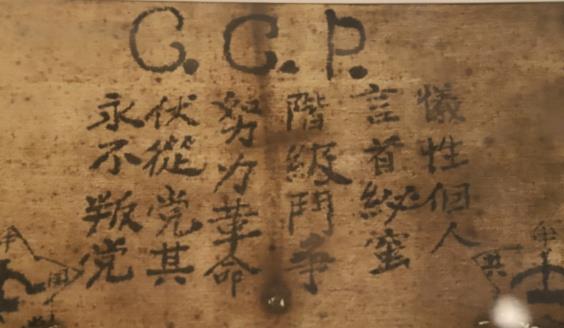 C.C.P.
犧性個人
言首秘蜜
階級鬥争
努力革命
伏從党其
永不叛党